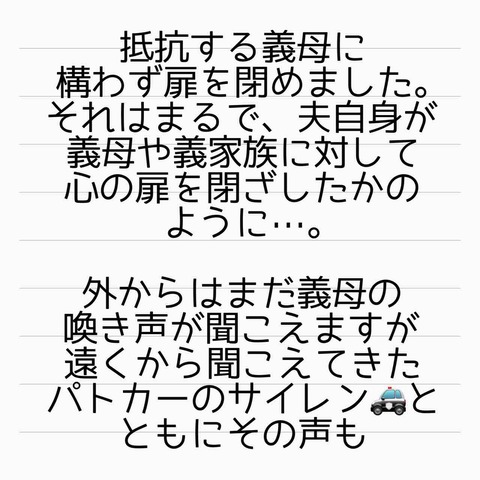 抵抗する義母に
構わず扉を閉めました。
それはまるで、夫自身が
義母や義家族に対して
心の扉を閉ざしたかの
ように…。
外からはまだ義母の
喚き声が聞こえますが
遠くから聞こえてきた
パトカーのサイレン🚓と
ともにその声も